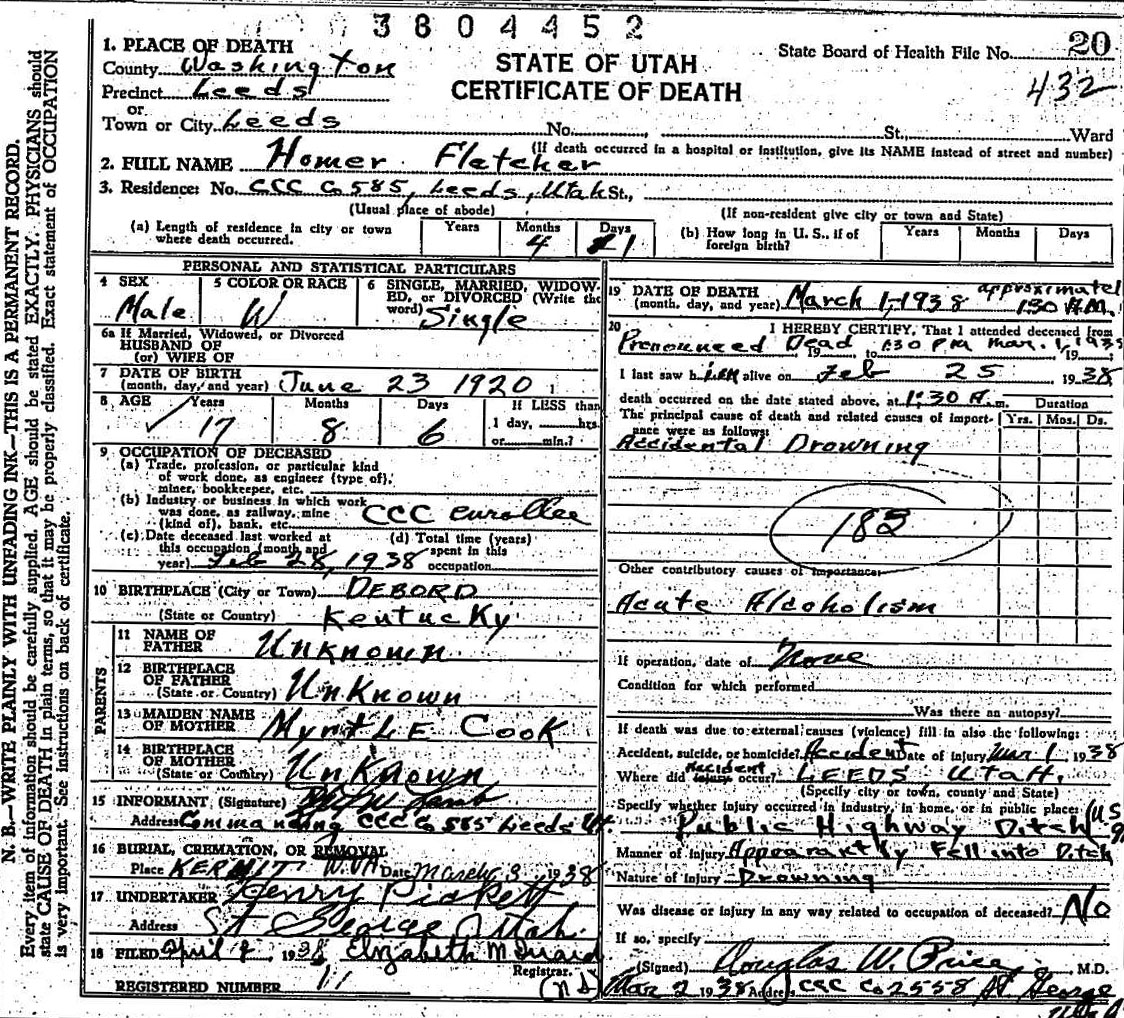 3804452
1. PLACE OF DEATH
County Washington
Precinct Leeds
or
Town or City Leeds
STATE OF UTAH
CERTIFICATE OF DEATH
State Board of Health File No. 20
432
No. , St., Ward
(If death occurred in a hospital or institution, give its NAME instead of street and number)
2. FULL NAME Homer Fletcher
3. Residence: No. CCC Co 585, Leeds, Utah St.,
(Usual place of abode)
(If non-resident give city or town and State)
(a) Length of residence in city or town where death occurred.
Years Months Days
4 21
(b) How long in U. S., if of foreign birth?
Years Months Days
PERSONAL AND STATISTICAL PARTICULARS
4 SEX
Male
5 COLOR OR RACE
W
6 SINGLE, MARRIED, WIDOW-
ED, or DIVORCED (Write the
word) Single
6a If Married, Widowed, or Divorced
HUSBAND OF
(or) WIFE OF
7 DATE OF BIRTH
(month, day, and year) June 23 1920
8 AGE Years Months Days If LESS than
17 8 6 1 day, hrs.
or min.?
9 OCCUPATION OF DECEASED
(a) Trade, profession, or particular kind
of work done, as engineer (type of),
miner, bookkeeper, etc.
(b) Industry or business in which work
was done, as railway, mine
(kind of), bank, etc. CCC enrollee
(c) Date deceased last worked at
this occupation (month and
year) Feb 28, 1938
(d) Total time (years)
spent in this
occupation
10 BIRTHPLACE (City or Town) DEBORD
(State or Country) Kentucky
PARENTS
11 NAME OF
FATHER Unknown
12 BIRTHPLACE
OF FATHER
(State or Country) UnKnown
13 MAIDEN NAME
OF MOTHER Myrtle Cook
14 BIRTHPLACE
OF MOTHER
(State or Country) UnKnown
15 INFORMANT (Signature) Lamb
Address Commanding CCC Co 585 Leeds Ut.
16 BURIAL, CREMATION, OR REMOVAL
Place KERMIT W.VA Date March 3 1938
17 UNDERTAKER Henry Pickett
Address St George Utah.
18 FILED April 1938 Elizabeth McQuaid
Registrar.
REGISTERED NUMBER 11
19 DATE OF DEATH
(month, day, and year) March 1, 1938 approximatel
1:30 A.M.
20 I HEREBY CERTIFY, That I attended deceased from
Pronounced Dead 19 to 1:30 PM Mar. 1, 1938 19 ;
I last saw him alive on Feb 25 1938
death occurred on the date stated above, at 1:30 A. m. Duration
The principal cause of death and related causes of import-
ance were as follows: Yrs. Mos. Ds.
Accidental Drowning
183
Other contributory causes of importance:
Acute Alcoholism
If operation, date of None
Condition for which performed
Was there an autopsy?
If death was due to external causes (violence) fill in also the following:
Accident, suicide, or homicide? Accident Date of injury Mar 1 1938
Accident
Where did injury occur? LEEDS Utah,
(Specify city or town, county and State)
Specify whether injury occurred in industry, in home, or in public place: (U S
Public Highway Ditch
Manner of Injury Apparantly Fell into Ditch
Nature of Injury Drowning
Was disease or injury in any way related to occupation of deceased? No
If so, specify
(Signed) Douglas W. Price, M.D.
Mar 2 1938 Address CCC Co 2558 St. George
N. B.—WRITE PLAINLY WITH UNFADING INK—THIS IS A PERMANENT RECORD.
Every item of information should be carefully supplied. AGE should be stated EXACTLY. PHYSICIANS should
state CAUSE OF DEATH in plain terms, so that it may be properly classified. Exact statement of OCCUPATION
is very important. See instructions on back of certificate.